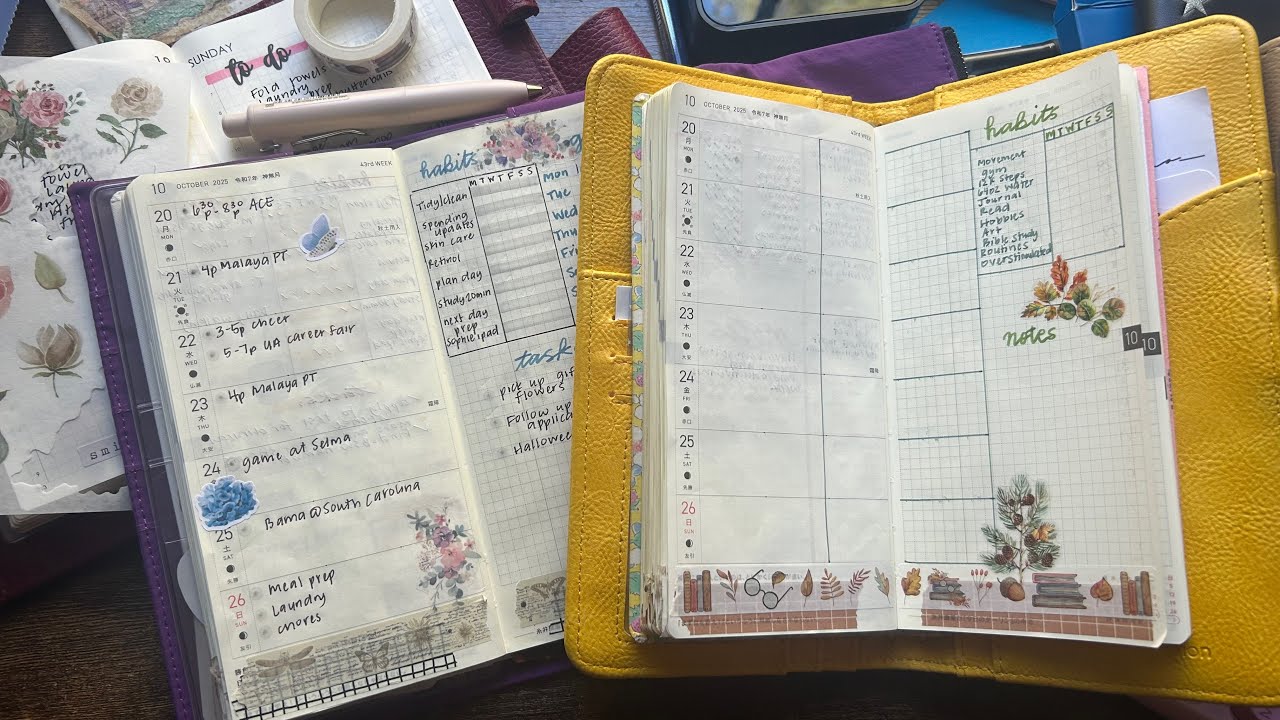 SUNDAY
to do
Fold towels
Laundry
prep
smi
10 OCTOBER 2025 令和7年 神無月
43rd WEEK
20
月
MON
赤口
6:30p-8:30p ACE
21
火
TUE
先負
4p Malaya PT
22
水
WED
仏滅
3-5p cheer
5-7p UA career fair
23
木
THU
大安
4p Malaya PT
霜降
24
game at Selma
25
土
SAT
先勝
Bama@South Carolina
26
日
SUN
友引
meal prep
laundry
chores
habits
M T W T F S S
Tidy/clean
spending
updates
skin care
Retinol
plan day
study 20min
next day
prep
Sophie ipad
Mon
Tue
Wed
Thu
Fri
task
pick up gif
flowers
Follow up
applica
Hallowee
10 OCTOBER 2025 令和7年 神無月
43rd WEEK
20
月
MON
赤口
21
火
TUE
先負
22
水
WED
仏滅
23
木
THU
大安
霜降
24
金
FRI
赤口
25
土
SAT
先勝
26
日
SUN
友引
habits
M T W T F S S
Movement
gym
12k steps
64oz water
Journal
Read
Hobbies
Art
Bible study
Routines
overstimulated
notes
10
10